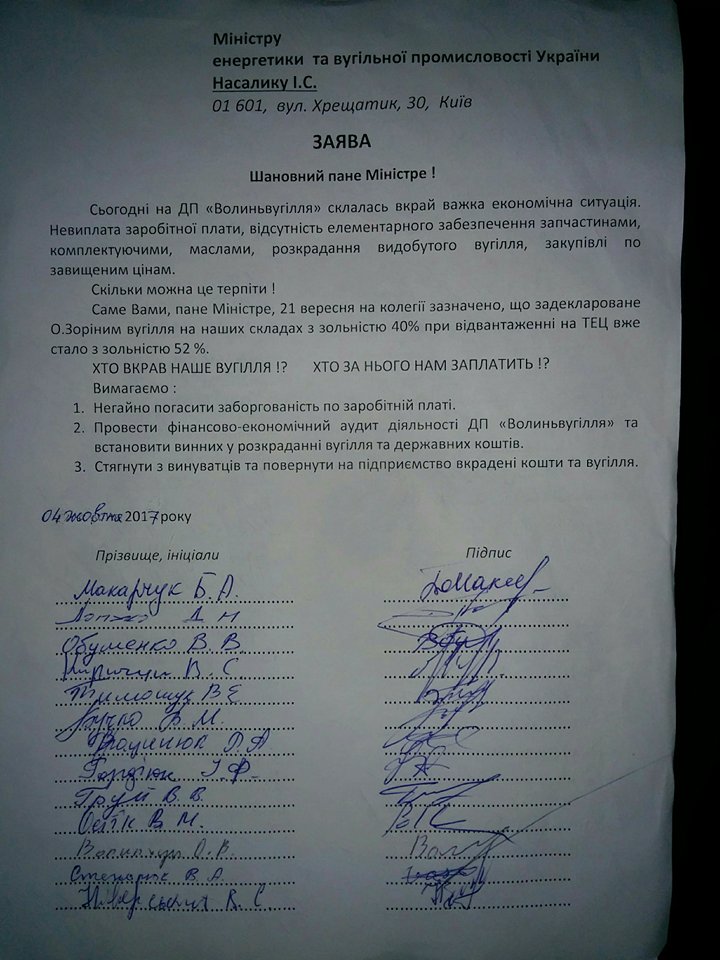 Міністру
енергетики та вугільної промисловості України
Насалику І.С.
01 601, вул. Хрещатик, 30, Київ
ЗАЯВА
Шановний пане Міністре !
Сьогодні на ДП «Волиньвугілля» склалась вкрай важка економічна ситуація.
Невиплата заробітної плати, відсутність елементарного забезпечення запчастинами,
комплектуючими, маслами, розкрадання видобутого вугілля, закупівлі по
завищеним цінам.
Скільки можна це терпіти !
Саме Вами, пане Міністре, 21 вересня на колегії зазначено, що задеклароване
О.Зоріним вугілля на наших складах з зольністю 40% при відвантаженні на ТЕЦ вже
стало з зольністю 52 %.
ХТО ВКРАВ НАШЕ ВУГІЛЛЯ !? ХТО ЗА НЬОГО НАМ ЗАПЛАТИТЬ !?
Вимагаємо :
1. Негайно погасити заборгованість по заробітній платі.
2. Провести фінансово-економічний аудит діяльності ДП «Волиньвугілля» та
встановити винних у розкраданні вугілля та державних коштів.
3. Стягнути з винуватців та повернути на підприємство вкрадені кошти та вугілля.
04 жовтня 2017 року
Прізвище, ініціали Підпис
Макарчук Б.А.
Д Н
Обуменко В. В.
Киричук В. С.
Тимощук В Є
Бучко В. М.
Р. А
Гордіюк І. Ф.
Груй В. В.
В. М.
О. В.
Степанюк В. А.